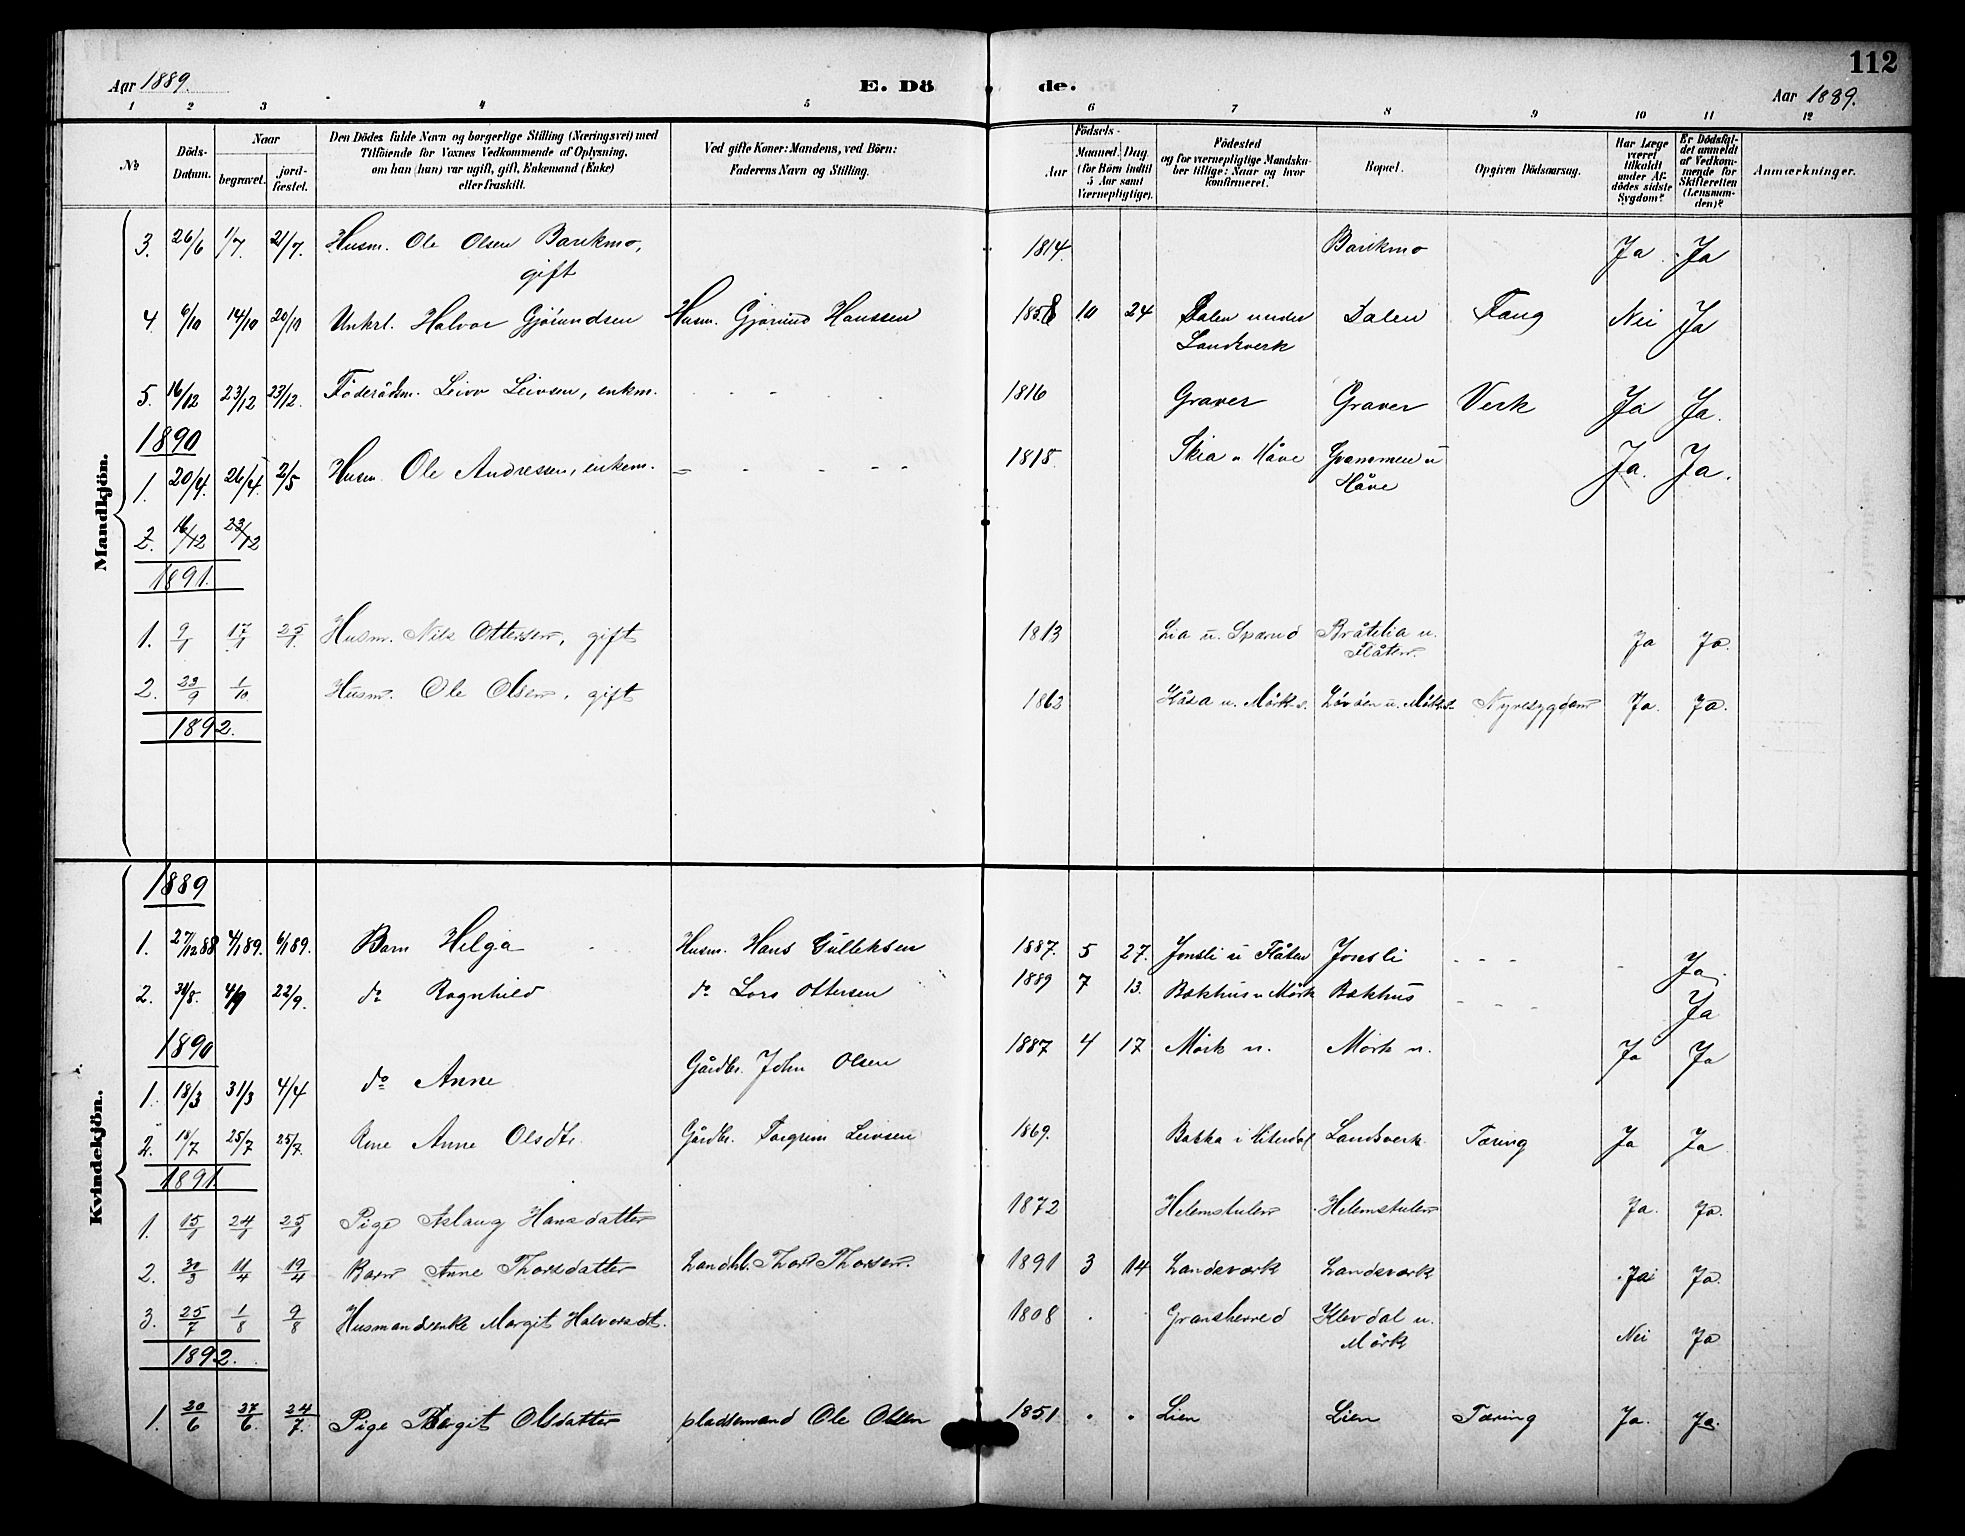 112
Aar 1889. E. Dö de. Aar 1889.
1 2 3 4 5 6 7 8 9 10 11 12
No
Döds-Datum.
Naar
begravet.
jordfæstet.
Den Dödes fulde Navn og borgerlige Stilling (Næringsvei) med
Tilföiende for Voxnes Vedkommende af Oplysning,
om han (hun) var ugift, gift, Enkemand (Enke)
eller fraskilt.
Ved gifte Koner: Mandens, ved Börn:
Faderens Navn og Stilling.
Födsels-
Aar
Maaned. Dag
(for Börn indtil
5 Aar samt
Værnepligtige).
Födested
og for værnepligtige Mandskaber tillige: Naar og hvor
konfirmeret.
Bopæl.
Opgiven Dödsaarsag.
Har Læge
været
tilkaldt
under Afdödes sidste
Sygdom?
Er Dödsfaldet anmeldt
af Vedkommende for
Skifteretten
(Lensmanden)?
Anmærkninger.
Mandkjön.
3. 26/6 1/7. 21/7. Husm. Ole Olsen Barikmo, 1814. Barikmo Ja Ja
gift
4. 6/10 14/10 20/10 Unkrl. Halvor Gjörundsen Husm. Gjörund Hanssen 1858 10 24 Dalen under Dalen Taug Nei Ja
Landsverk
5. 16/12 23/12 23/12. Föderådsm. Leivv Leivsen, enkm. 1816 Graver Graver Verk Ja Ja.
1890
1. 20/4. 26/4. 2/5 Husm. Ole Andressen, enkem. 1818 Skia u Håve Grammen u Ja. Ja.
Håve
2. 16/12 23/12
1891.
1. 9/1 17/1 25/1 Husm. Nils Ottersen, gift 1813 Lia u. Sparud Bråtelia u. Ja Ja.
Flåten.
2. 23/9 1/10 Husm. Ole Olsen, gift 1862 Håsa u. Mörk s. Lövåen u. Mörk s. Nyresygdom Ja. Ja.
1892.
Kvindekjön.
1889
1. 27/12 88 4/1 89. 6/1 89. Barn Helga Husm. Hans Gulleksen 1887. 5 27. Jonsli u Flåten Jonsli Ja.
2. 31/8. 4/9 22/9. do Ragnhild do Lars Ottersen 1889 7 13. Bækhus u Mörk Bækhus Ja
1890
1. 18/3 31/3 4/4 do Anne Gårdbr. John Olsen 1887 4 17 Mörk n. Mörk n. Ja Ja
2. 18/7 25/7 25/7. Kone Anne Olsdtr. Gårdbr. Torgrim Leivsen 1869. Bakka i Hiterdal Landsverk Tæring Ja Ja
1891.
1. 15/1 24/1 25/1 Pige Aslaug Hansdatter 1872 Helemstulen Helemstulen Ja. Ja.
2. 30/3 11/4 19/4 Barn Anne Thorsdatter Landhl. Thor Thorsen. 1891 3 14 Landsværk Landsværk Ja Ja.
3. 25/7 1/8 9/8 Husmandsenke Margit Halvorsdt. 1808 Gransherred Klevdal u. Nei Ja
Mörk
1892.
1. 20/6 27/6. 24/7. Pige Bergit Olsdatter pladsemand Ole Olsen 1851 Lien Lien Tæring Ja. Ja.